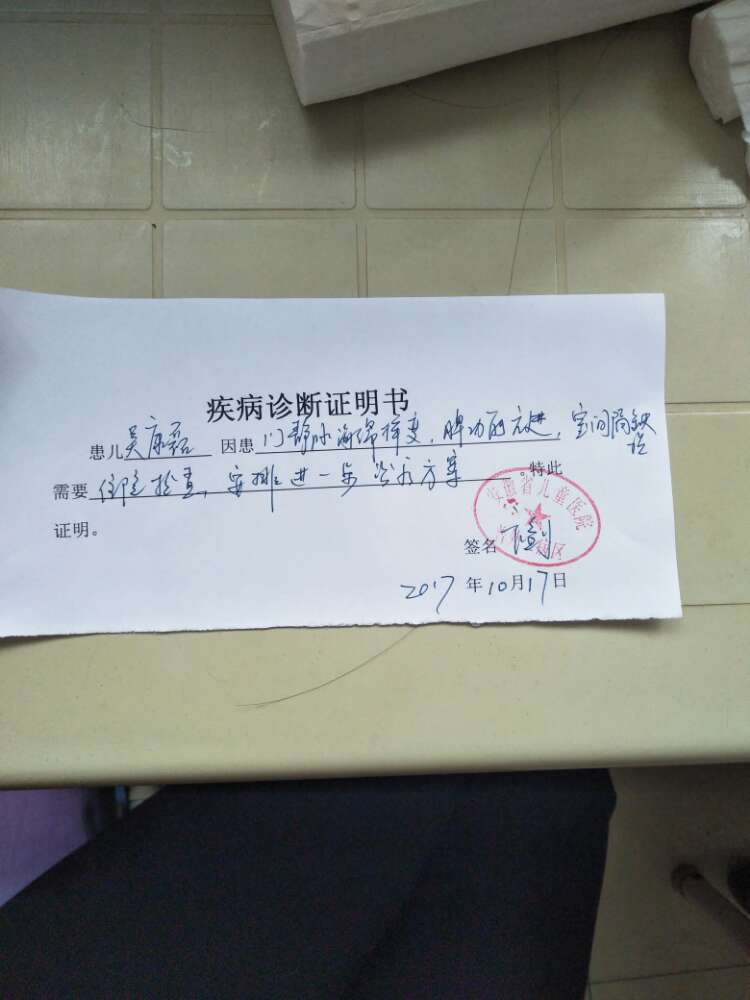 疾病诊断证明书
患儿吴康磊 因患门静脉海绵样变，脾功能亢进，室间隔缺损
需要住院检查，安排进一步治疗方案。特此
证明。
安徽省儿童医院
签名
2017年10月17日